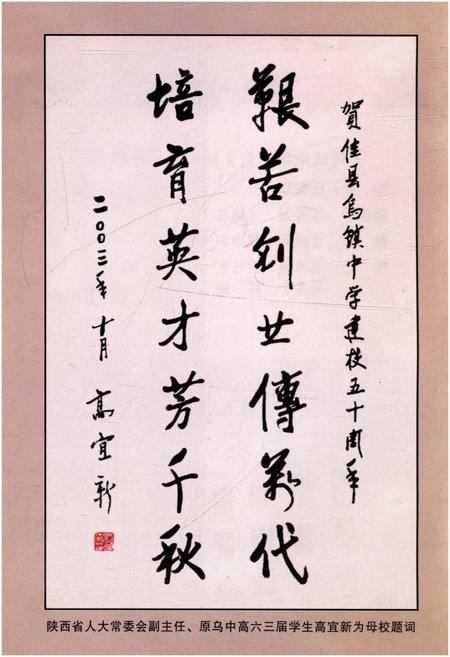 賀佳县烏鎮中学建校五十周年
艰苦創世傳萬代
培育英才芳千秋
二〇〇三年十月
高宜新
陕西省人大常委会副主任、原乌中高六三届学生高宜新为母校题词